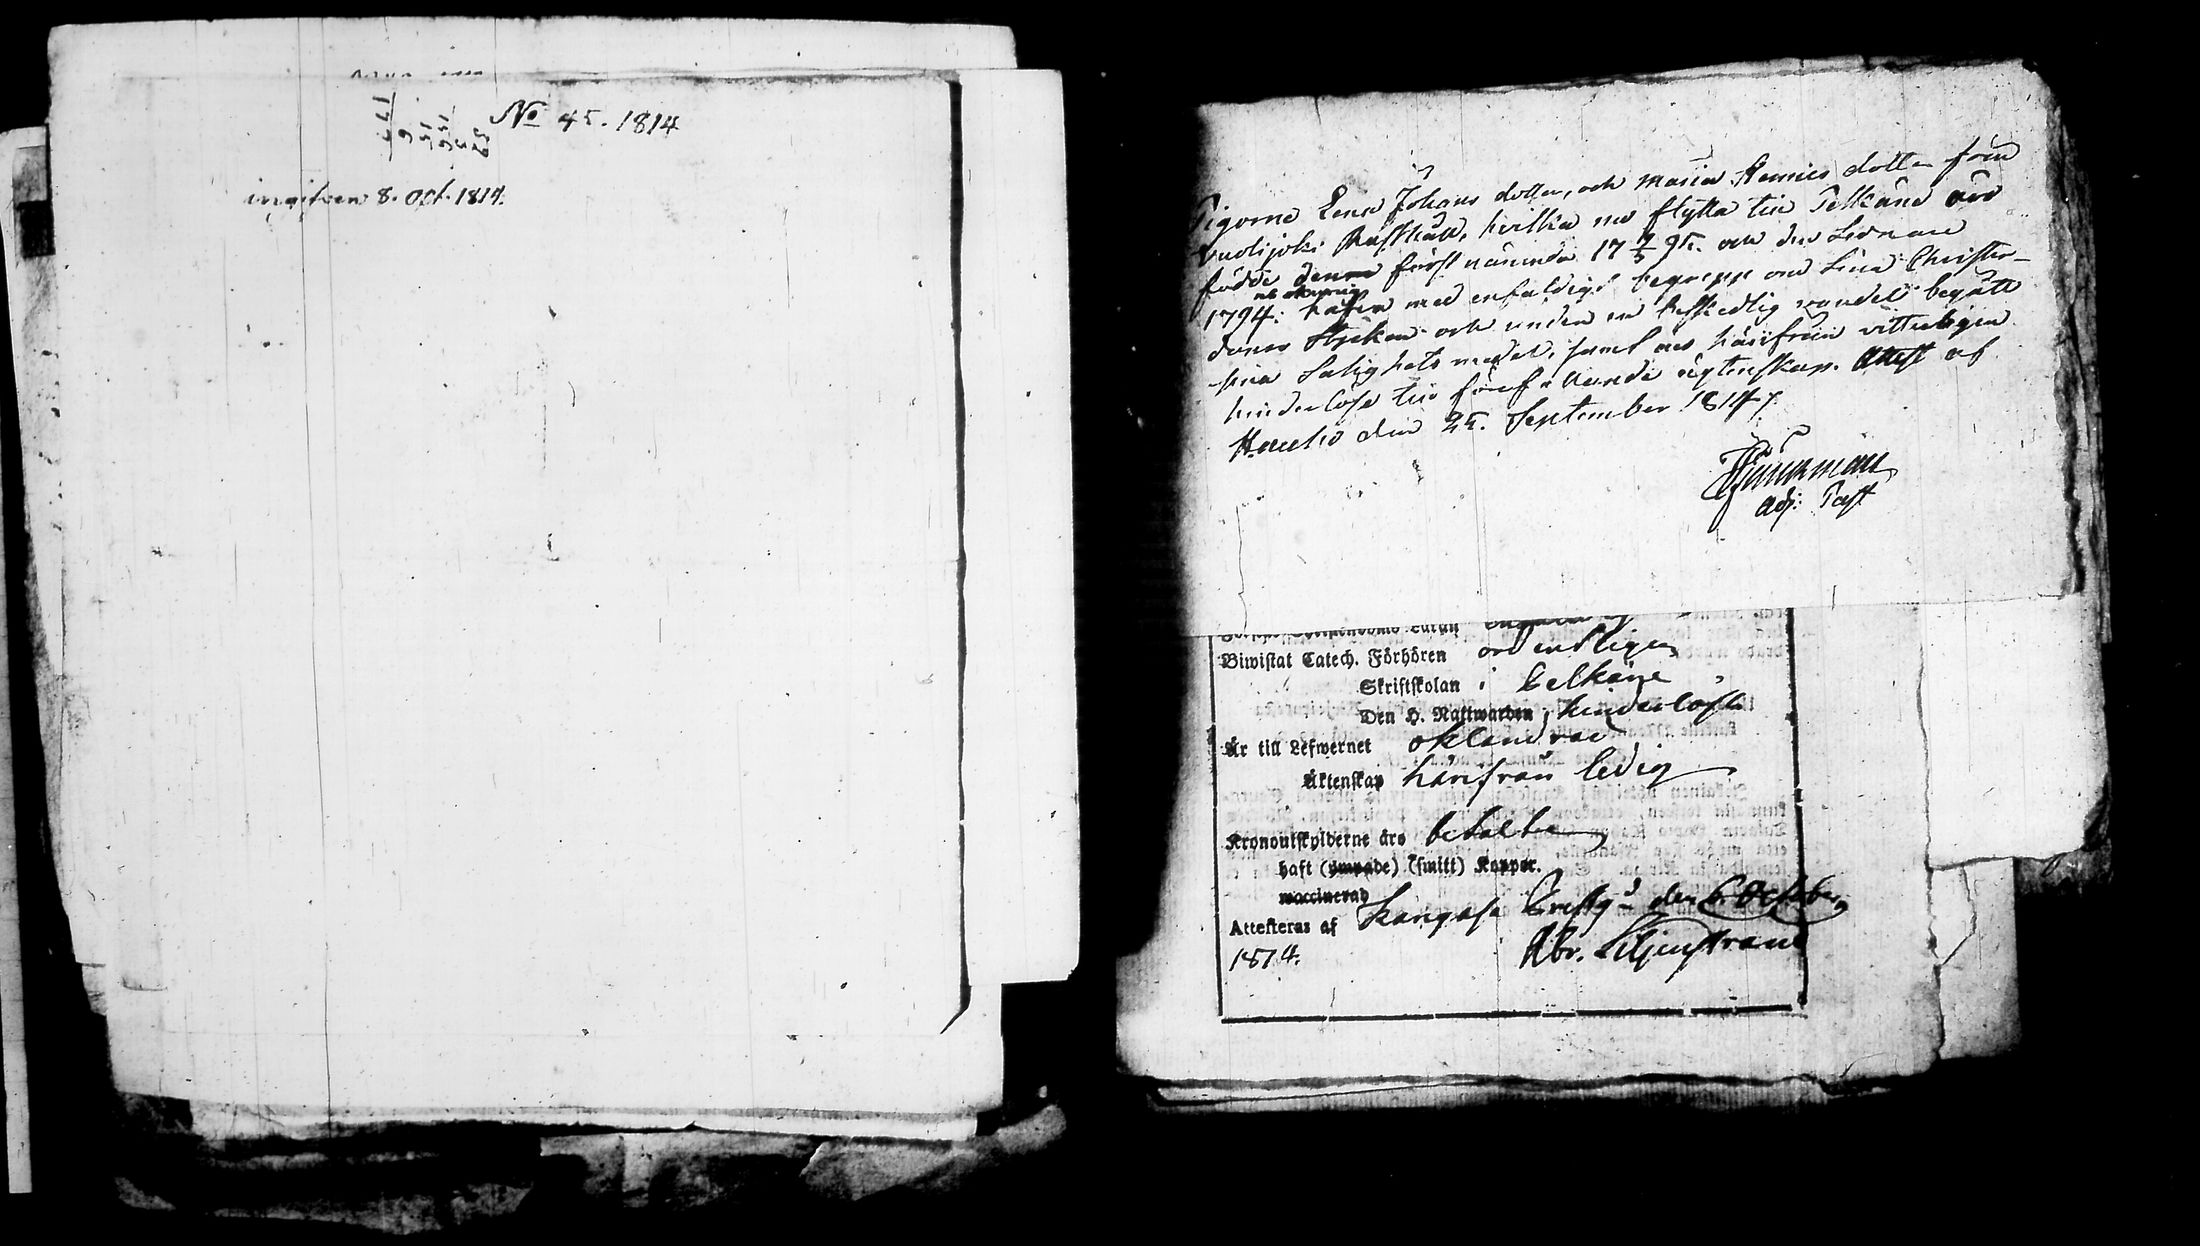 No 45. 1814
ingifven 8. Oct. 1814.
Pigorne Lena Johans dotter, och Maria Hennics dotter från
Vuolijoki Rusthåll, hvilka nu flytta till Pelkäne äro
födde denna förstnämnda 17 5/7 95. och den sednare
1794: hafva med enfaldigt begrepp om sina Christen-
doms Stycken och under en beskedlig vandel begått
sina Salighets medel, samt äro härifrån vitterligen
hinderlösa till förefallande ägtenskap. Attest af
Hauho den 25. September 1814
adj: Past
Biwistat Catech. Förhören ordentligen
Skriftskolan i Pelkäne
Den H. Nattwarden hinderlöst
Är till Lefwernet oklandrad
Äktenskap härifrån ledig
Kronoutskylderne äro betalte
haft (ympade) (smitt) Koppor.
waccinerad
Attesteras af Kangasa Prestg:d den 6 October
1814. Abr. Liljenstrand